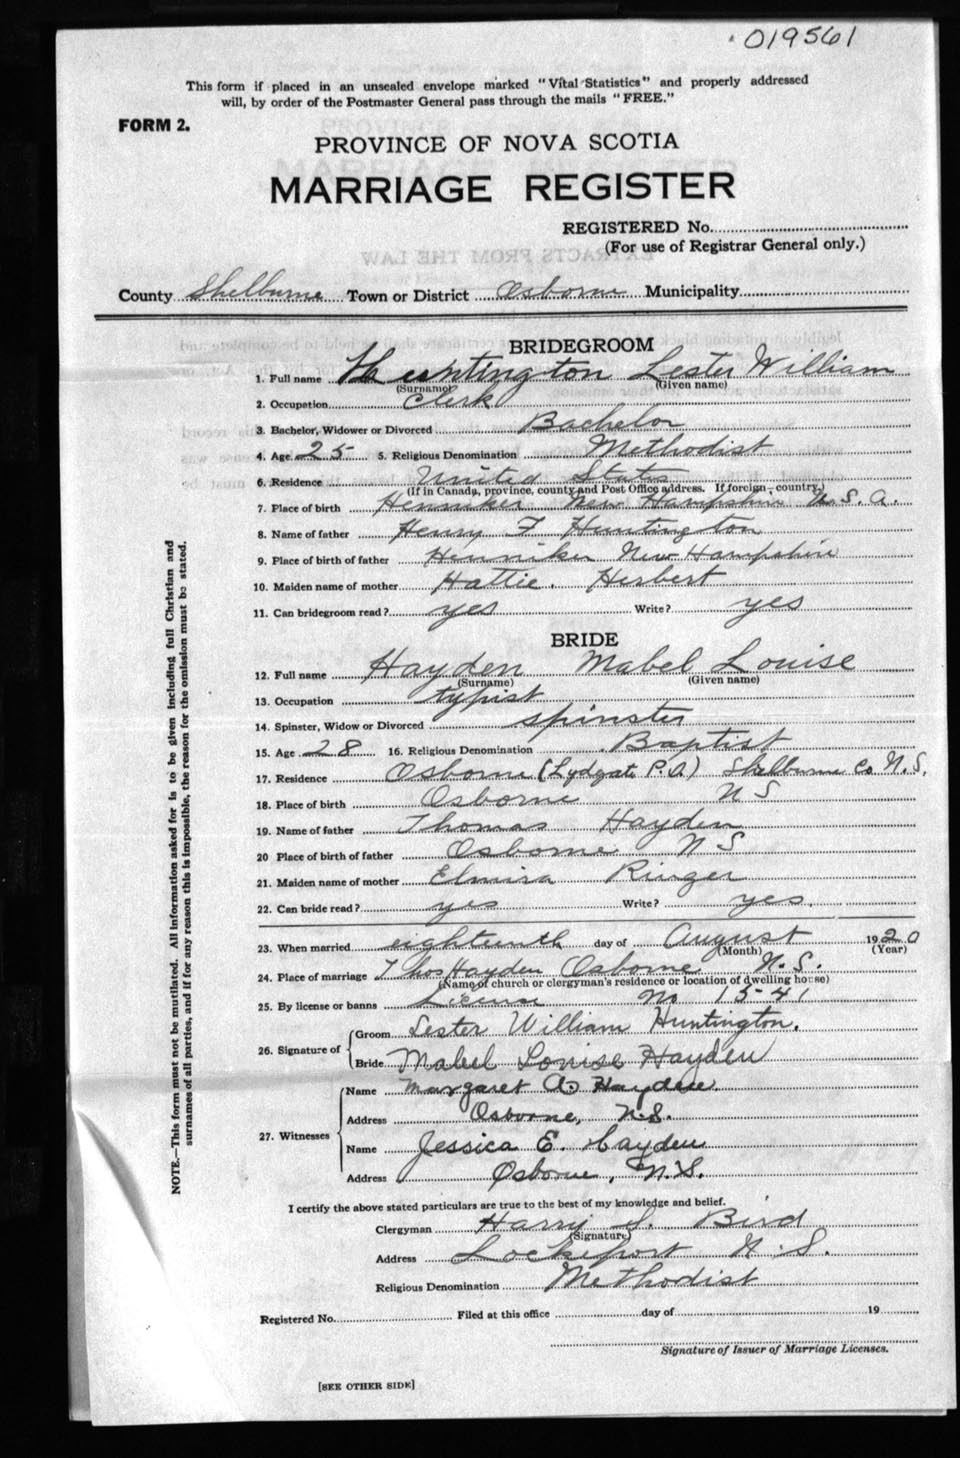 019561
This form if placed in an unsealed envelope marked "Vital Statistics" and properly addressed
will, by order of the Postmaster General pass through the mails "FREE."
FORM 2.
PROVINCE OF NOVA SCOTIA
MARRIAGE REGISTER
REGISTERED No.
(For use of Registrar General only.)
County Shelburne Town or District Osborne Municipality
BRIDEGROOM
1. Full name Huntington Lester William
(Surname) (Given name)
2. Occupation Clerk
3. Bachelor, Widower or Divorced Bachelor
4. Age 25 5. Religious Denomination Methodist
6. Residence United States
(If in Canada, province, county and Post Office address. If foreign, country.)
7. Place of birth Henniker New Hampshire U.S.A.
8. Name of father Henry F Huntington
9. Place of birth of father Henniker New Hampshire
10. Maiden name of mother Hattie. Herbert
11. Can bridegroom read? yes Write? yes
BRIDE
12. Full name Hayden Mabel Louise
(Surname) (Given name)
13. Occupation typist
14. Spinster, Widow or Divorced spinster
15. Age 28 16. Religious Denomination Baptist
17. Residence Osborne (Lydgate P.O) Shelburne Co N.S.
18. Place of birth Osborne N S
19. Name of father Thomas Hayden
20 Place of birth of father Osborne N S
21. Maiden name of mother Elmira Ringer
22. Can bride read? yes Write? yes.
23. When married eighteenth day of August 1920
(Month) (Year)
24. Place of marriage Thos Hayden Osborne N.S.
(Name of church or clergyman's residence or location of dwelling house)
25. By license or banns License No 1541
26. Signature of Groom Lester William Huntington.
Bride Mabel Louise Hayden
27. Witnesses
Name Margaret A. Hayden.
Address Osborne, N.S.
Name Jessica E. Hayden
Address Osborne, N.S.
I certify the above stated particulars are true to the best of my knowledge and belief.
Clergyman Harry S. Bird
(Signature)
Address Lockeport N.S.
Religious Denomination Methodist
Registered No. Filed at this office day of 19
Signature of Issuer of Marriage Licenses.
[SEE OTHER SIDE]
NOTE.—This form must not be mutilated. All information asked for is to be given including full Christian and
surnames of all parties, and if for any reason this is impossible, the reason for the omission must be stated.